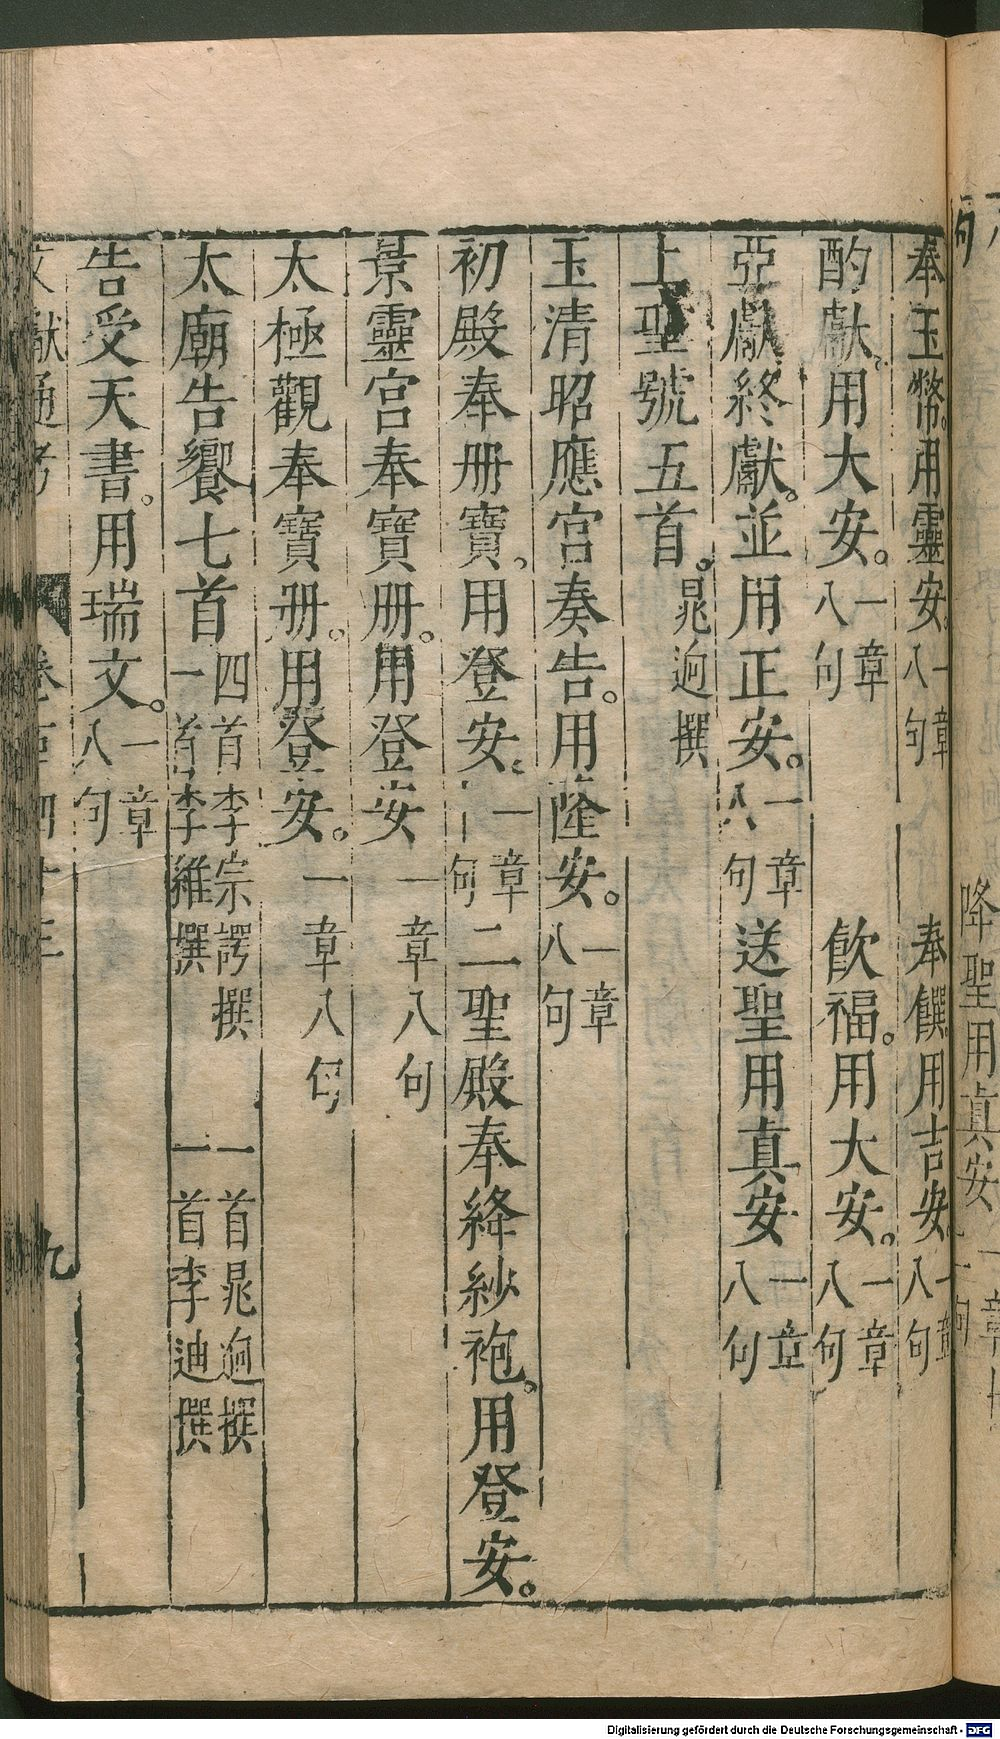 奉玉幣。用靈安。一章八句　奉饌用吉安。一章八句
酌獻。用大安。一章八句　飮福。用大安。一章八句
亞獻終獻。並用正安。一章八句　送聖用真安一章八句
上聖號五首。晁迥撰
玉清昭應宮奏告。用隆安。一章八句
初殿奉册寶。用登安。一章句　二聖殿奉絳紗袍。用登安。
景靈宮奉寶册。用登安一章八句
太極觀奉寶册。用登安。一章八句
太廟告饗七首四首李宗諤撰　一首晁迥撰　一首李維撰　一首李迪撰
告受天書。用瑞文。一章八句
文獻通考　卷百四十三　九
降聖用真安一章
句
Digitalisierung gefördert durch die Deutsche Forschungsgemeinschaft - DFG